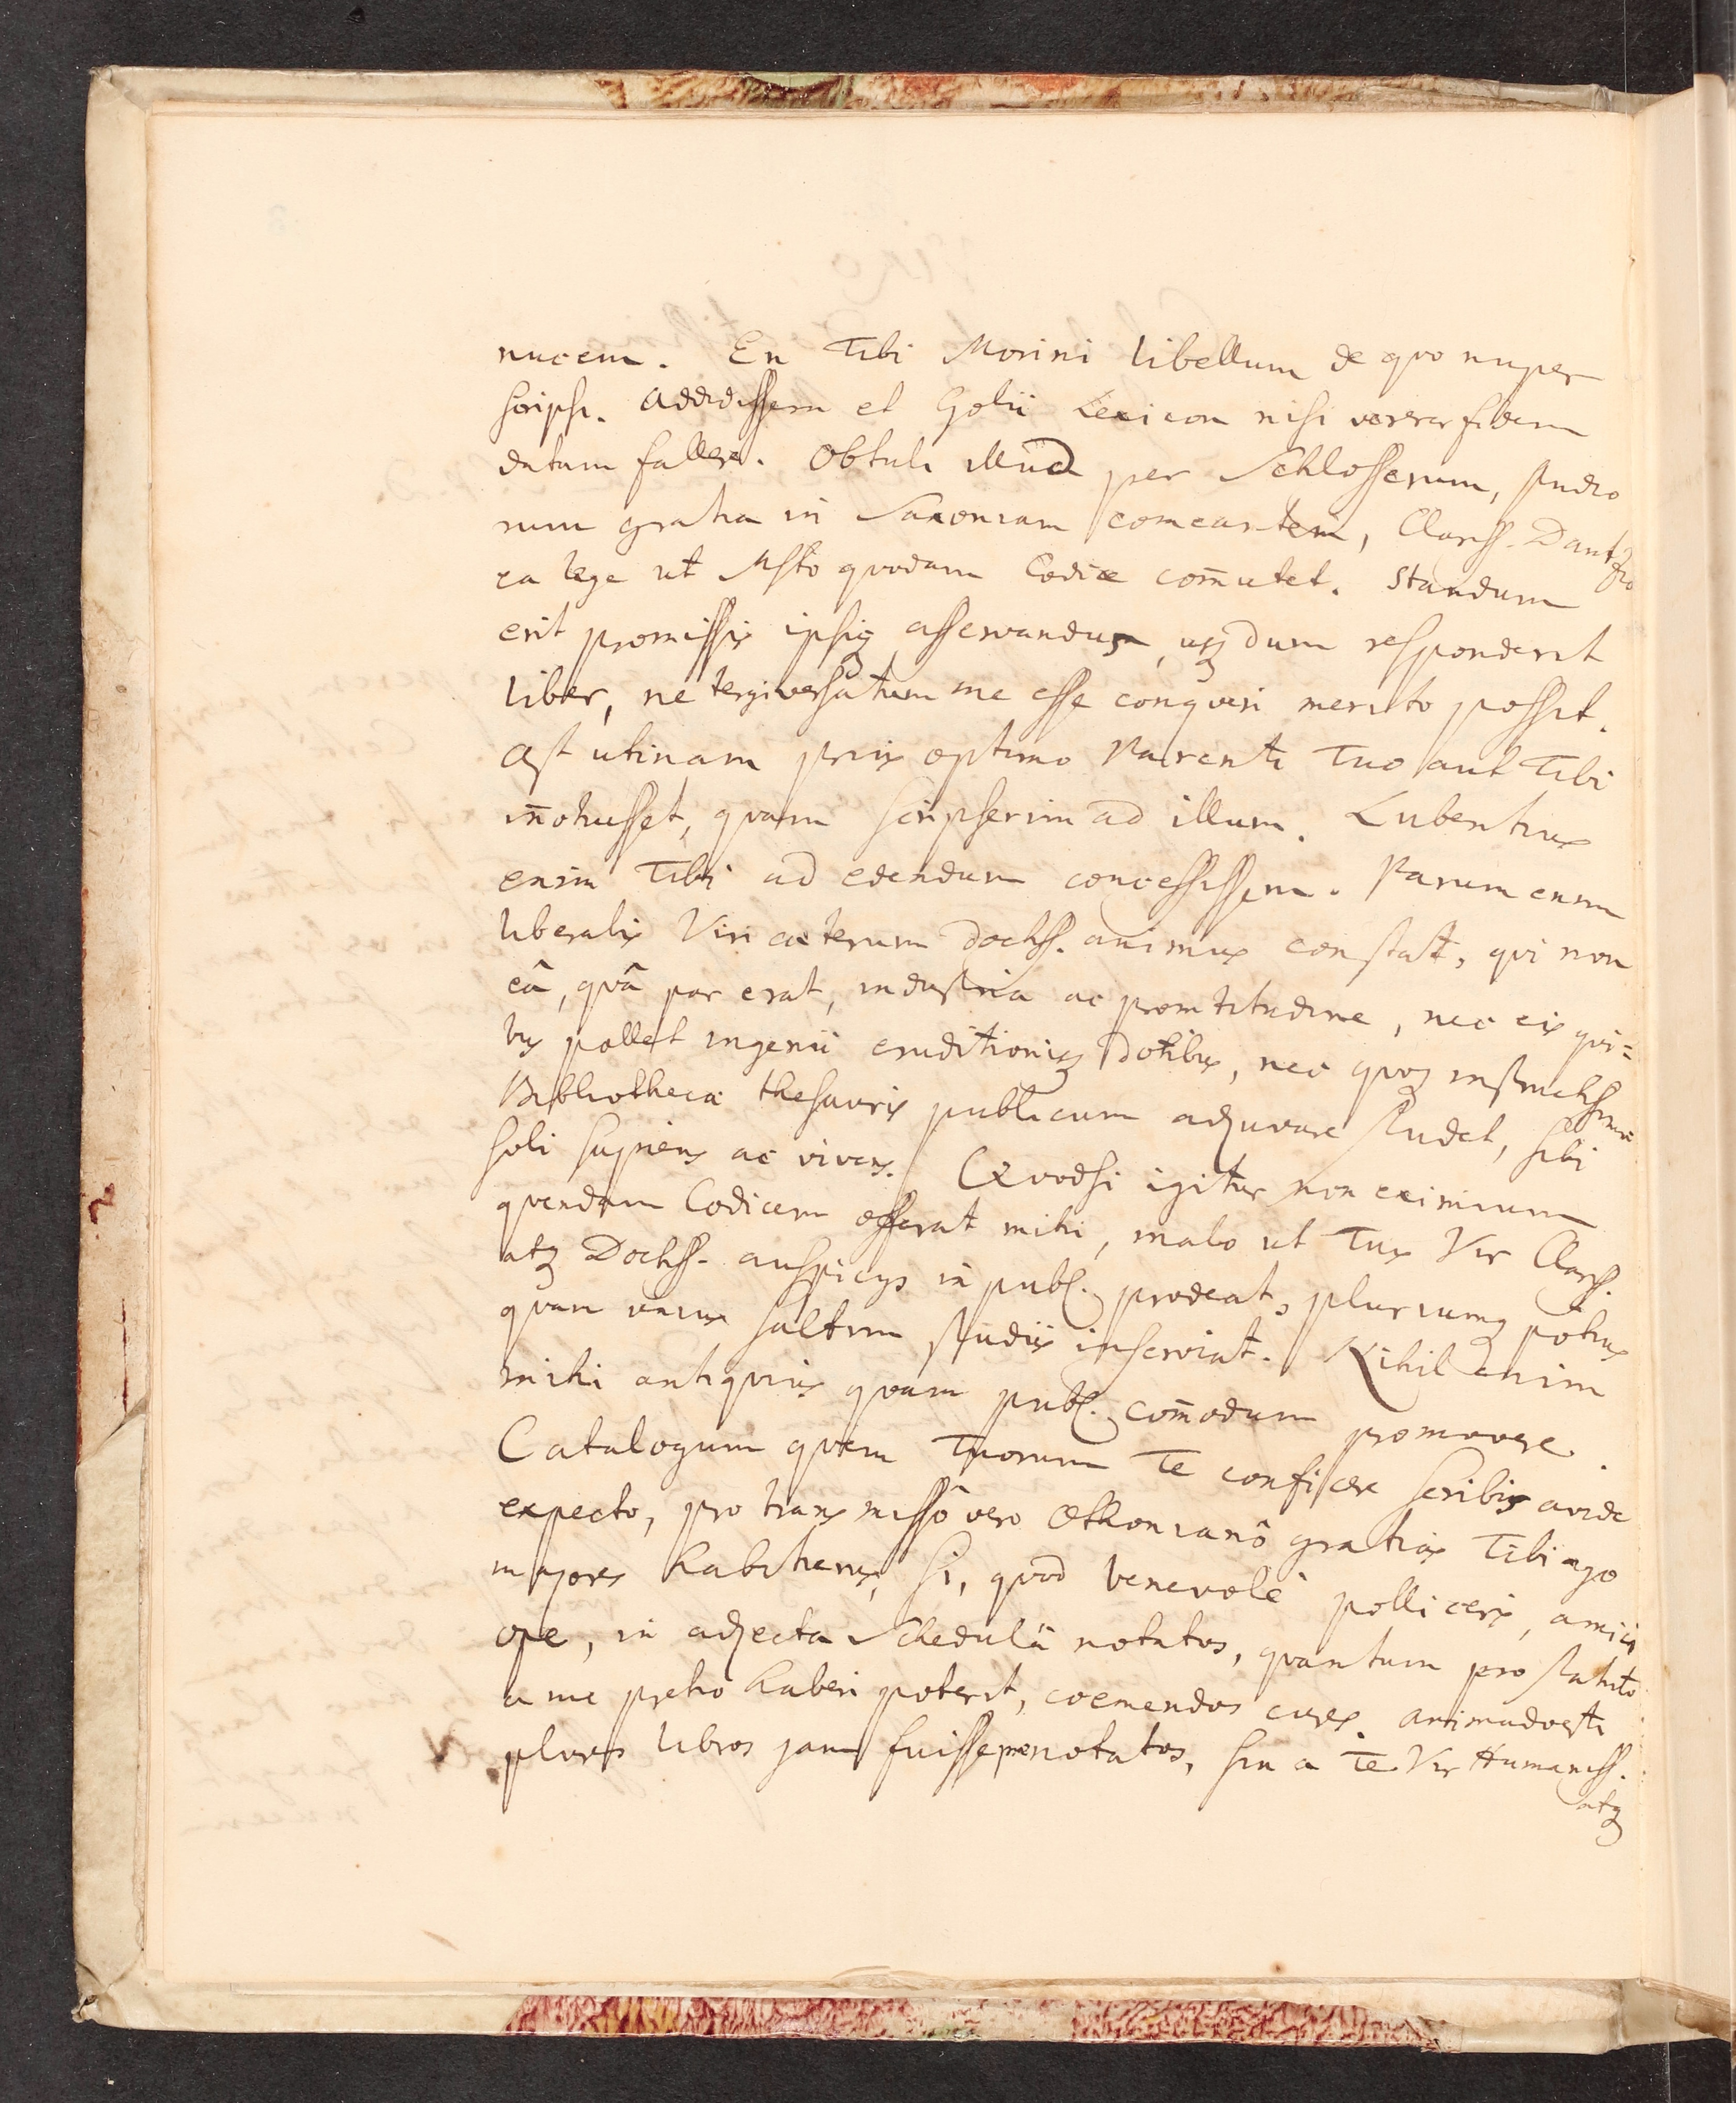 nucem. En Tibi Morini libellum de quo nuper
scripsi. Addidissem et Golii Lexicon nisi vererer fidem
datam fallere. Obtuli illud per Schlosserum, studio
rum gratia in Saxoniam comeantem, Clariss. Dantzio
ea lege ut Msto quodam Codice com̄utet. Standum
erit promissis ipsiq; asservandum, usq; dum responderit
liber, ne tergiversatum me esse conqueri merito possit.
Ast utinam prius optimo Parenti Tuo aut Tibi
iñotuisset, quam scripserim ad illum. Lubentius
enim Tibi ad edendum concessissem. Parum enim
liberalis Viri caeterum doctiss. animus constat, qui non
eâ, quâ par erat, industria ac promtitudine, nec eis qui=
bus pollet ingenii eruditionisq; dotibus, nec quoq; instructissimae
Bibliothecae thesauris publicum adjuvare studet, sibi
soli sapiens ac vivens. Qvodsi igitur non eximium
quendam Codicem offerat mihi, malo ut Tuis Vir Clariss.
atq; Doctiss. auspicijs in publ. prodeat, pluriumq; potius
quam unius saltem studiis inserviat. Nihil enim
mihi antiquius quam publ. com̄odum promovere.
Catalogum quem Tuorum Te conficere scribis avide
expecto, pro transmissô vero Othonianô gratias Tibi ago
majores habiturus, si, quod benevolè polliceris, amici
ope, in adjecta Schedulâ notatos, quantum pro statuto
a me pretio haberi poterit, coemendos cures. Animadverti
plures libros jam fuisse praenotatos, sin a Te Vir Humaniss.
atq;